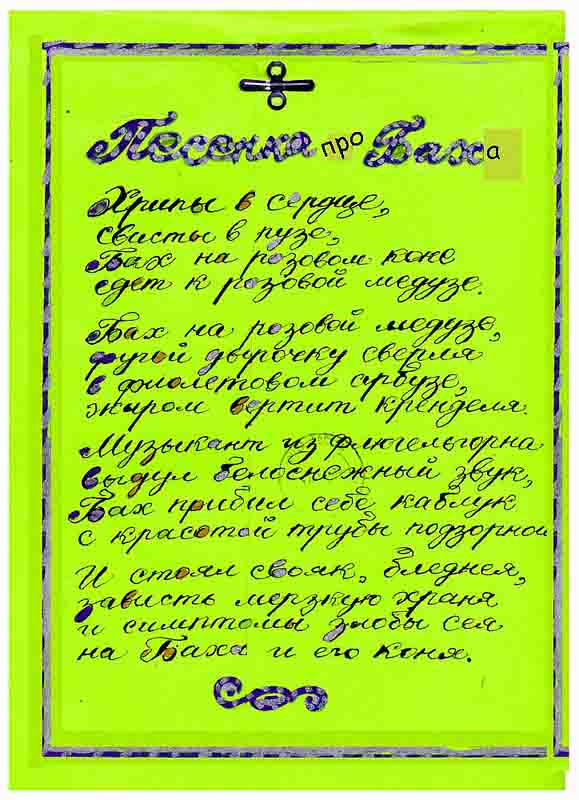 Песенка про Баха
Хрипы в сердце,
свисты в пузе,
Бах на розовом коне
едет к розовой медузе.
Бах на розовой медузе,
фугой дырочку сверля
в фиолетовом арбузе,
жаром вертит кренделя.
Музыкант из флюгельгорна
выдул белоснежный звук,
Бах прибил себе каблук
с красотой трубы подзорной
И стоял свояк, бледнея,
зависть мерзкую храня
и симптомы злобы сея
на Баха и его коня.